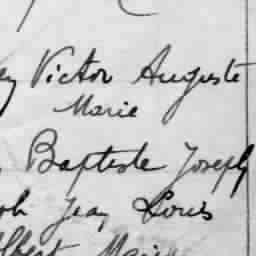 ey Victor Auguste
Marie
Baptiste Joseph
oh Jean Louis
Albert Marie